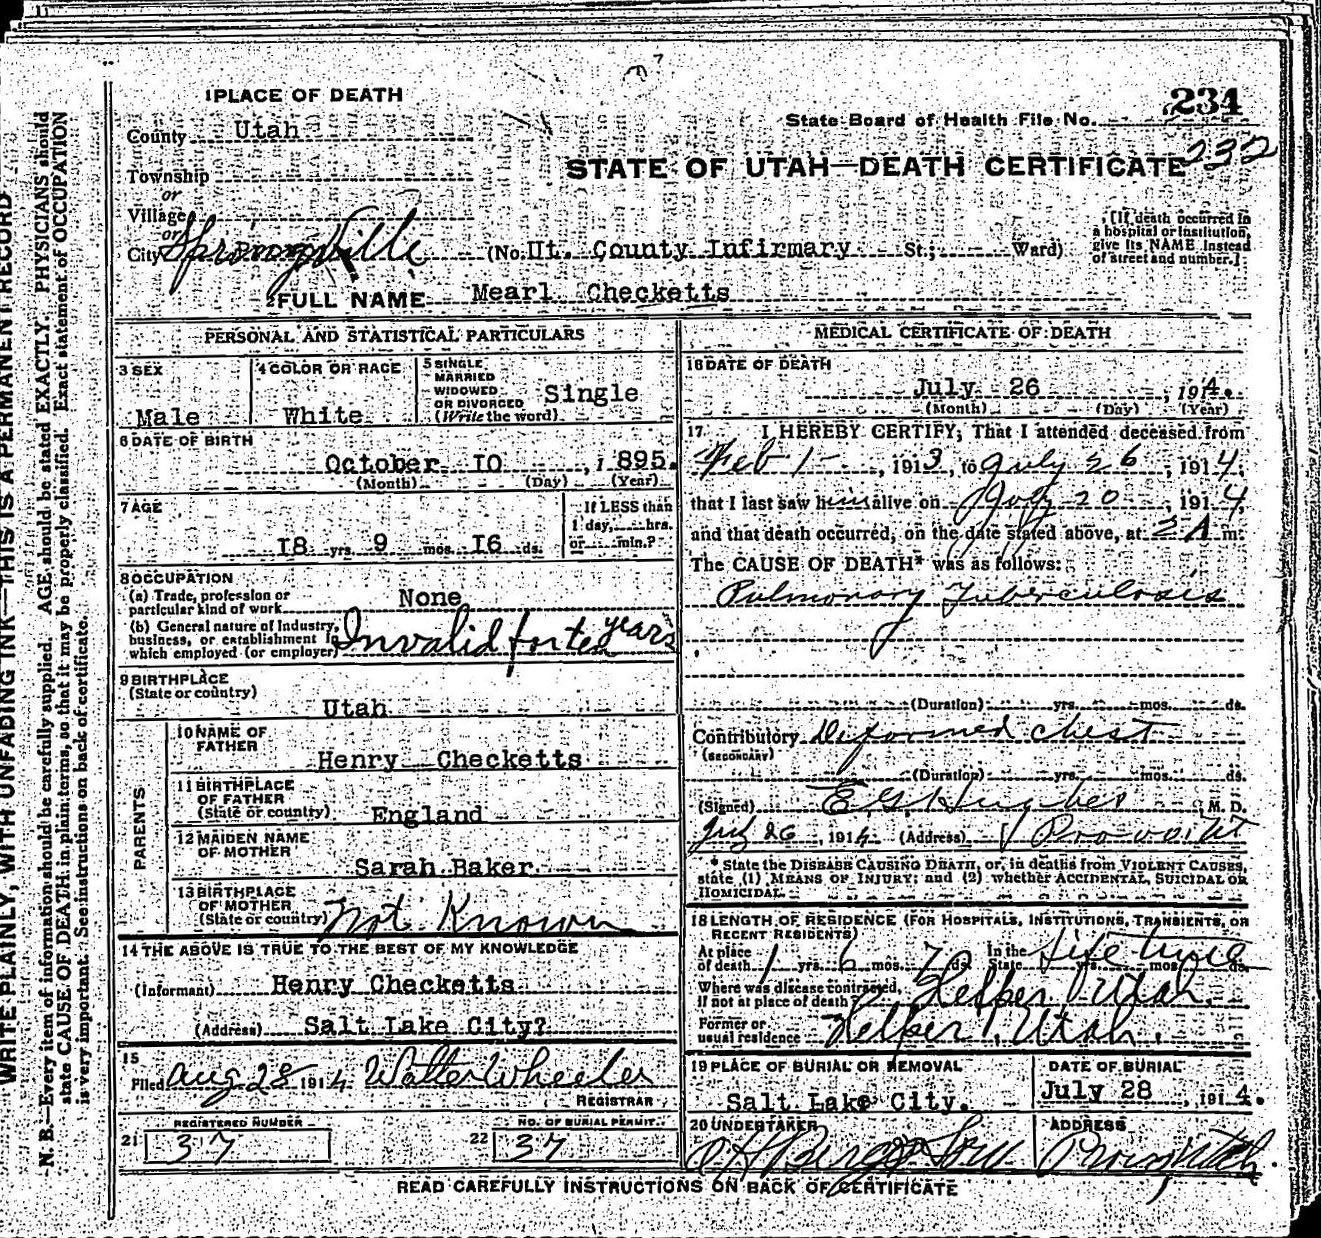 WRITE PLAINLY, WITH UNFADING INK—THIS IS A PERMANENT RECORD
N. B.—Every item of information should be carefully supplied. AGE should be stated EXACTLY. PHYSICIANS should
state CAUSE OF DEATH in plain terms, so that it may be properly classified. Exact statement of OCCUPATION
is very important. See instructions on back of certificate.
1 PLACE OF DEATH
234
State Board of Health File No.
232
County Utah
STATE OF UTAH—DEATH CERTIFICATE
Township
or
Village
or
City Springville (No. Ut. County Infirmary St.; Ward)
[If death occurred in
a hospital or institution,
give its NAME instead
of street and number.]
2 FULL NAME Mearl Checketts
PERSONAL AND STATISTICAL PARTICULARS
3 SEX
Male
4 COLOR OR RACE
White
5 SINGLE
MARRIED
WIDOWED
OR DIVORCED
(Write the word)
Single
6 DATE OF BIRTH
October 10, 1895.
(Month) (Day) (Year)
7 AGE
18 yrs. 9 mos. 16 ds.
If LESS than
1 day, hrs.
or min.?
8 OCCUPATION
(a) Trade, profession or
particular kind of work None
(b) General nature of Industry,
business, or establishment in
which employed (or employer) Invalid for ten years
9 BIRTHPLACE
(State or country)
Utah
PARENTS
10 NAME OF
FATHER
Henry Checketts
11 BIRTHPLACE
OF FATHER
(State or country)
England
12 MAIDEN NAME
OF MOTHER
Sarah Baker
13 BIRTHPLACE
OF MOTHER
(State or country) Not Known
14 THE ABOVE IS TRUE TO THE BEST OF MY KNOWLEDGE
(Informant) Henry Checketts
(Address) Salt Lake City?
15
Filed Aug 28 1914 Walter Wheeler
REGISTRAR
REGISTERED NUMBER
21 37
NO. OF BURIAL PERMIT
22 37
MEDICAL CERTIFICATE OF DEATH
16 DATE OF DEATH
July 26, 1914.
(Month) (Day) (Year)
17 I HEREBY CERTIFY, That I attended deceased from
Feb 1-, 1913, to July 26, 1914,
that I last saw him alive on July 20, 1914,
and that death occurred, on the date stated above, at 2 A m.
The CAUSE OF DEATH* was as follows:
Pulmonary Tuberculosis
(Duration) yrs. mos. ds.
Contributory Deformed chest
(SECONDARY)
(Duration) yrs. mos. ds.
(Signed) E G Hughes M. D.
July 26, 1914 (Address) Provo Ut
* State the DISEASE CAUSING DEATH, or, in deaths from VIOLENT CAUSES,
state (1) MEANS OF INJURY; and (2) whether ACCIDENTAL, SUICIDAL OR
HOMICIDAL
18 LENGTH OF RESIDENCE (FOR HOSPITALS, INSTITUTIONS, TRANSIENTS, OR
RECENT RESIDENTS)
At place
of death 1 yrs. 6 mos. ds. In the
State Life time yrs. mos. ds.
Where was disease contracted,
if not at place of death? Helper Utah.
Former or
usual residence Helper, Utah.
19 PLACE OF BURIAL OR REMOVAL
Salt Lake City.
DATE OF BURIAL
July 28, 1914.
20 UNDERTAKER
Berg & Son
ADDRESS
Provo, Utah.
READ CAREFULLY INSTRUCTIONS ON BACK OF CERTIFICATE